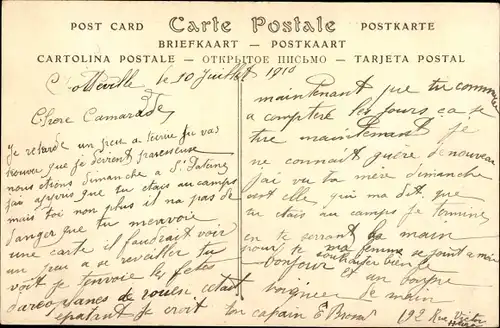 POST CARD Carte Postale POSTKARTE
BRIEFKAART — POSTKAART
CARTOLINA POSTALE — ОТКРЫТОЕ ПИСЬМО — TARJETA POSTAL
le 10 Juillet 1910
Chere Camarade
je retarde un peu a écrire tu vas
trouver que je devient
nous étions dimanche a
jai appris que tu étais au camps
mais toi non plus il na pas de
danger que tu menvoie
une carte il faudrait voir
un peu a se reveiller tu
voit je tenvoie les fêtes
de
épatant je croit
maintenant que tu commence
a compter les jours ça se
tire maintenant je
ne connait guère de nouveau
jai vu ta mère dimanche
est elle qui ma dit que
tu étais au camps je termine
en te serrant la main
ma femme se joint a moi
pour te souhaiter bien le
bonjour et un
de main
ton copain E
192 Rue Victor
Hugo